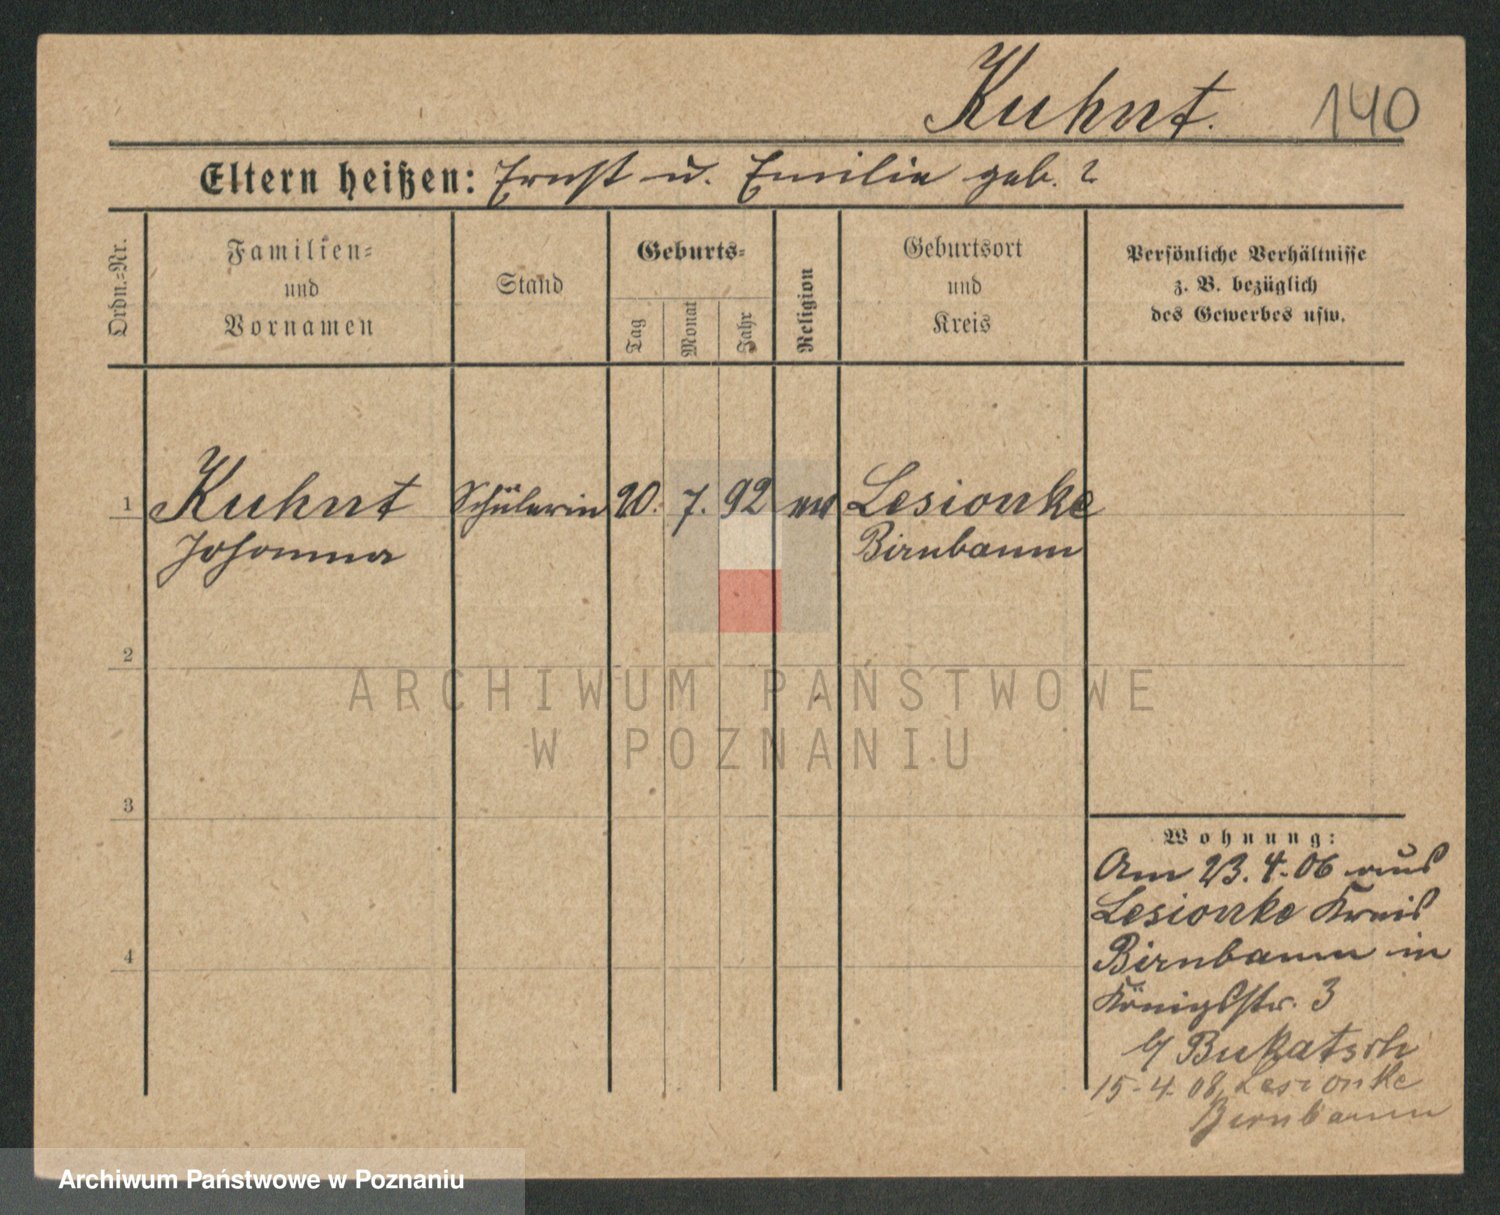 Kuhnt. 140
Eltern heißen: Ernst u. Emilie geb. ?
Ordn.-Nr.
Familien-
und
Vornamen
Stand
Geburts-
Tag
Monat
Jahr
Religion
Geburtsort
und
Kreis
Persönliche Verhältnisse
z. B. bezüglich
des Gewerbes usw.
1 Kuhnt Schülerin 20. 7. 92 Lesionke
Johanna Birnbaum
2
ARCHIWUM PAŃSTWOWE
W POZNANIU
3
Wohnung:
Am 23. 4. 06 aus
Lesionke Kreis
4
Birnbaum in
Königsstr. 3
b/ Bukatsch
15-4. 08 Lesionke
Birnbaum
Archiwum Państwowe w Poznaniu